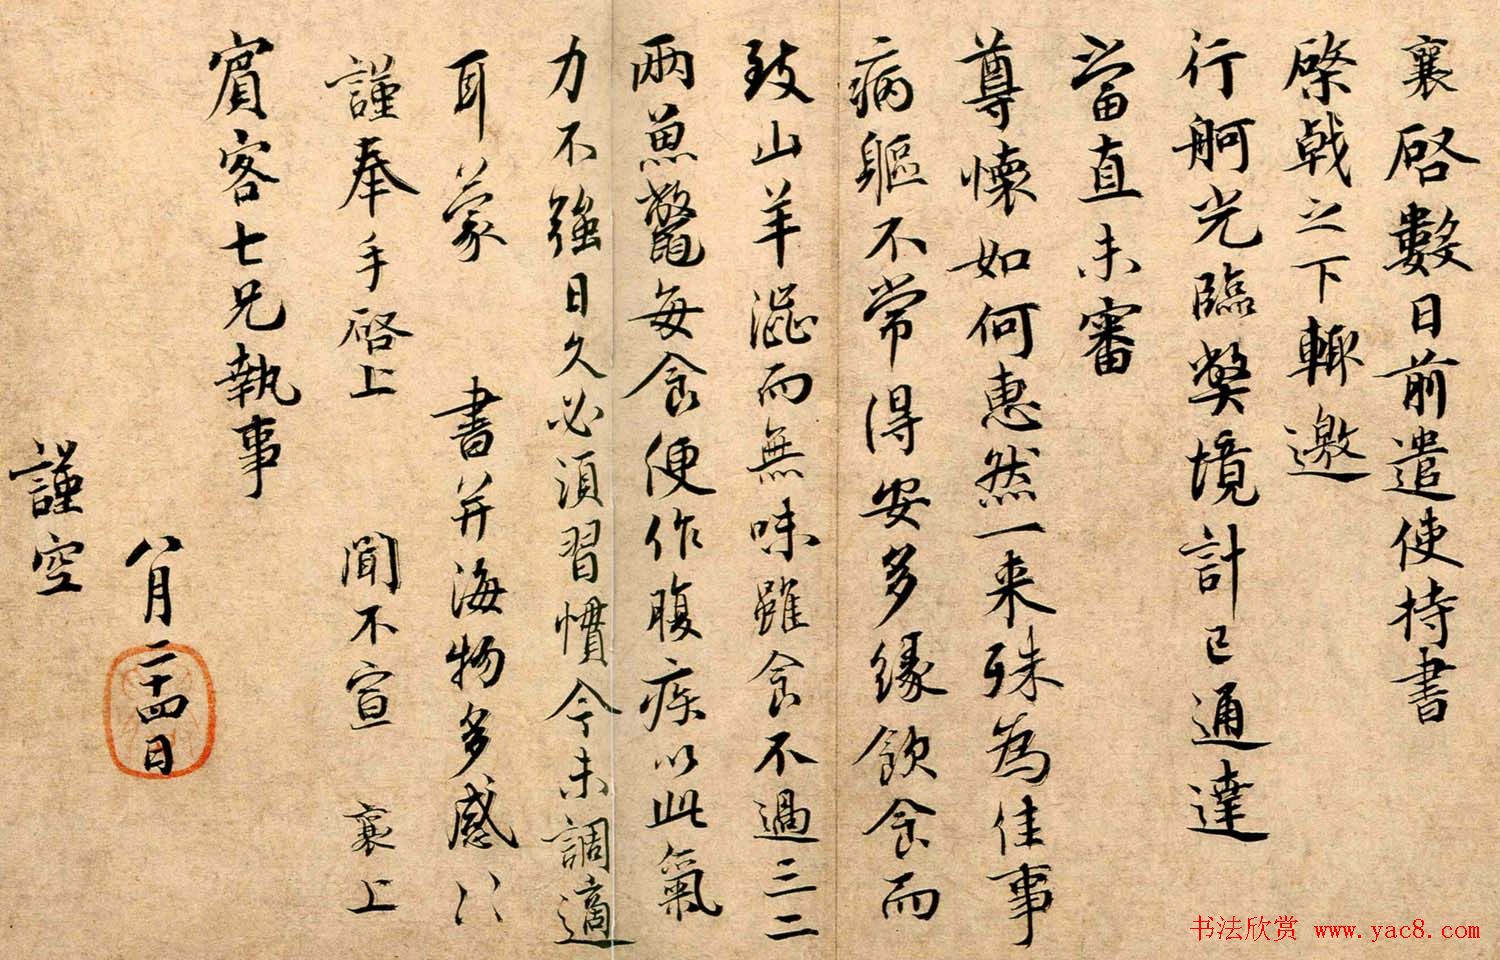 襄啓數日前遣使持書
棨戟之下輙邀
行舸光臨獘境計已通達
當直未審
尊懷如何惠然一来殊為佳事
病軀不常得安多緣飲食而
致山羊澁而無味雖食不過三二
兩魚鼈每食便作腹疾以此氣
力不強日久必須習慣今未調適
耳蒙 書并海物多感〻
謹奉手啓上 聞不宣 襄上
賓客七兄執事
八月二十四日
謹空
书法欣赏 www.yac8.com